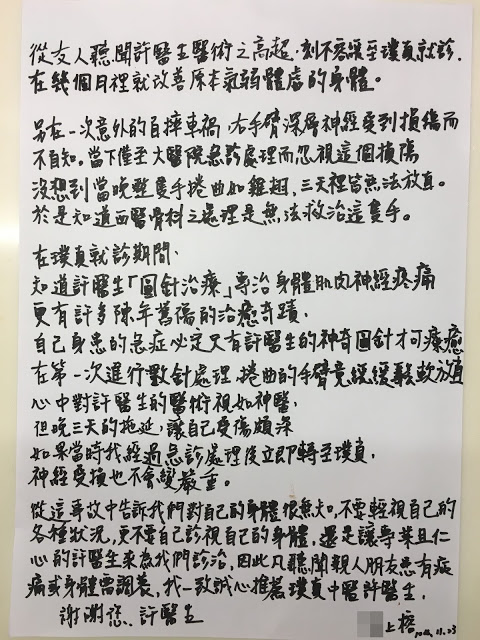 從友人聽聞許醫生醫術之高超,刻不容緩至璞真就診.
在幾個月裡就改善原本氣弱體虛的身體。
另在一次意外的自摔車禍,右手臂深層神經受到損傷而
不自知。當下僅至大醫院急診處理而忽視這個損傷
沒想到當晚整隻手捲曲如雞翅,三天裡皆無法放直。
於是知道西醫骨科之處理是無法救治這隻手。
在璞真就診期間,
知道許醫生「圓針治療」專治身體肌肉神經疼痛
更有許多陳年舊傷的治癒奇蹟,
自己身患的急症必定只有許醫生的神奇圓針才可療癒
在第一次進行數針處理,捲曲的手臂竟緩緩鬆軟放直
心中對許醫生的醫術視如神醫,
但晚三天的拖延,讓自己受傷頗深
如果當時我經過急診處理後立即轉至璞真,
神經受損也不會變嚴重。
從這事故中告訴我們對自己的身體很無知,不要輕視自己的
各種狀況,更不要自己診視自己的身體,還是讓專業且仁
心的許醫生來為我們診治,因此凡聽聞親人朋友患有症
痛或身體需調養,我一致誠心推薦璞真中醫許醫生,
謝謝您,許醫生
上榰 11.23